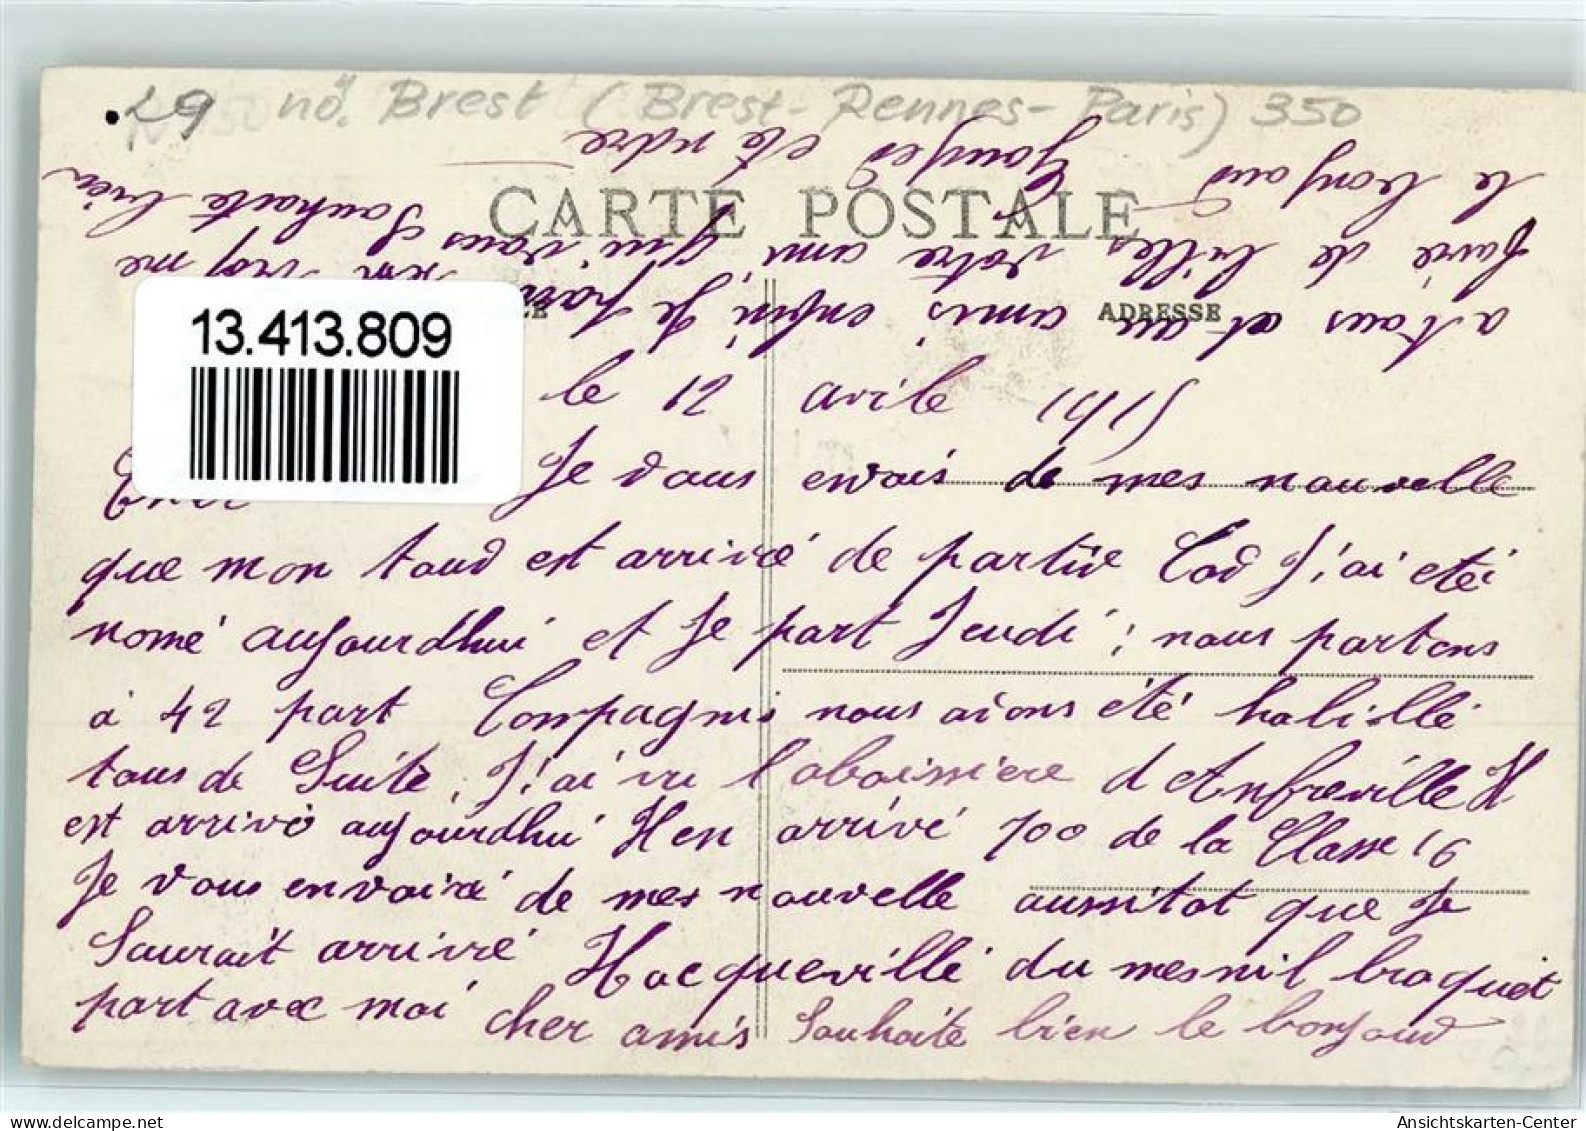 29 nö. Brest (Brest-Rennes-Paris) 350
CARTE POSTALE
ADRESSE
13.413.809
le 12 avile
Je vous envois de mes nouvelle
que mon toud est arrivé de partie J'ai eté
nomé aujourd'hui et Je part Jeudi ; nous partons
à 42 part Compagnis nous aions été habillé
tous de Suite, J'ai vu l'aboissiere d'Anfreville
est arrivé aujourdhui Hen arrivé 700 de la Classe 16
Je vous envoiré de mes nouvelle aussitot que Je
Saurait arrivé Hacqueville du mesnil braquet
part avec moi cher amis Souhaite bien le bonjoud
a tous et au amis enfin Je
faire de billes votre ami qui vous Souhaite bien
le bonjoud
delcampe.net
Ansichtskarten-Center